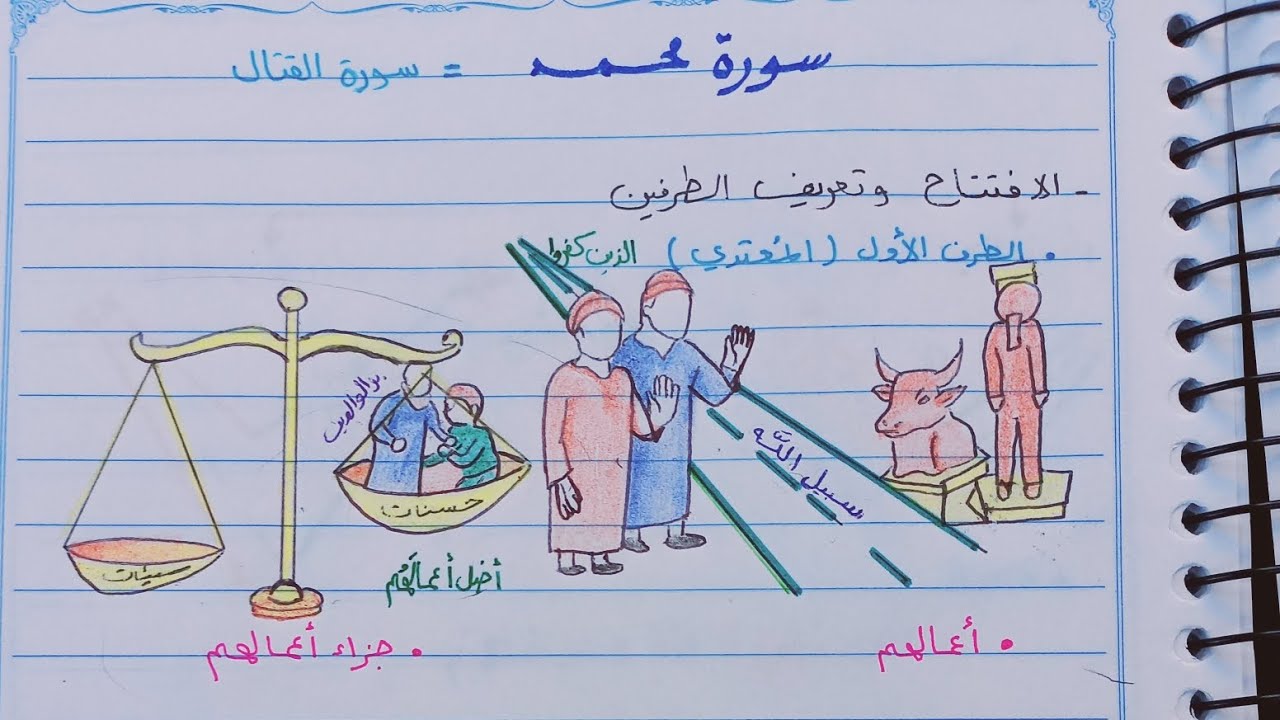 سورة محمد = سورة القتال
- الافتتاح وتعريف الطرفين
• الطرف الأول (المُعتدي) الذين كفروا
بر الوالدين
سبيل الله
حسنات
سيئات
أضل أعمالهم
• أعمالهم
• جزاء أعمالهم